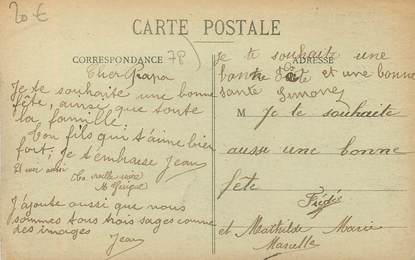 20 €
CARTE POSTALE
CORRESPONDANCE
78
ADRESSE
Cher Papa
Je te souhaite une bonne
fête, ainsi que toute
la famille.
Ton fils qui t'aime bien
fort, Je t'embrasse Jean
Et moi aussi
Ta vieille
J'ajoute aussi que nous
sommes tous trois sages comme
des images
Jean
Je te souhaite une
bonne fête et une bonne
santé Simone
M Je te souhaite
aussi une bonne
fête
et Mathilde Marie
Marcelle